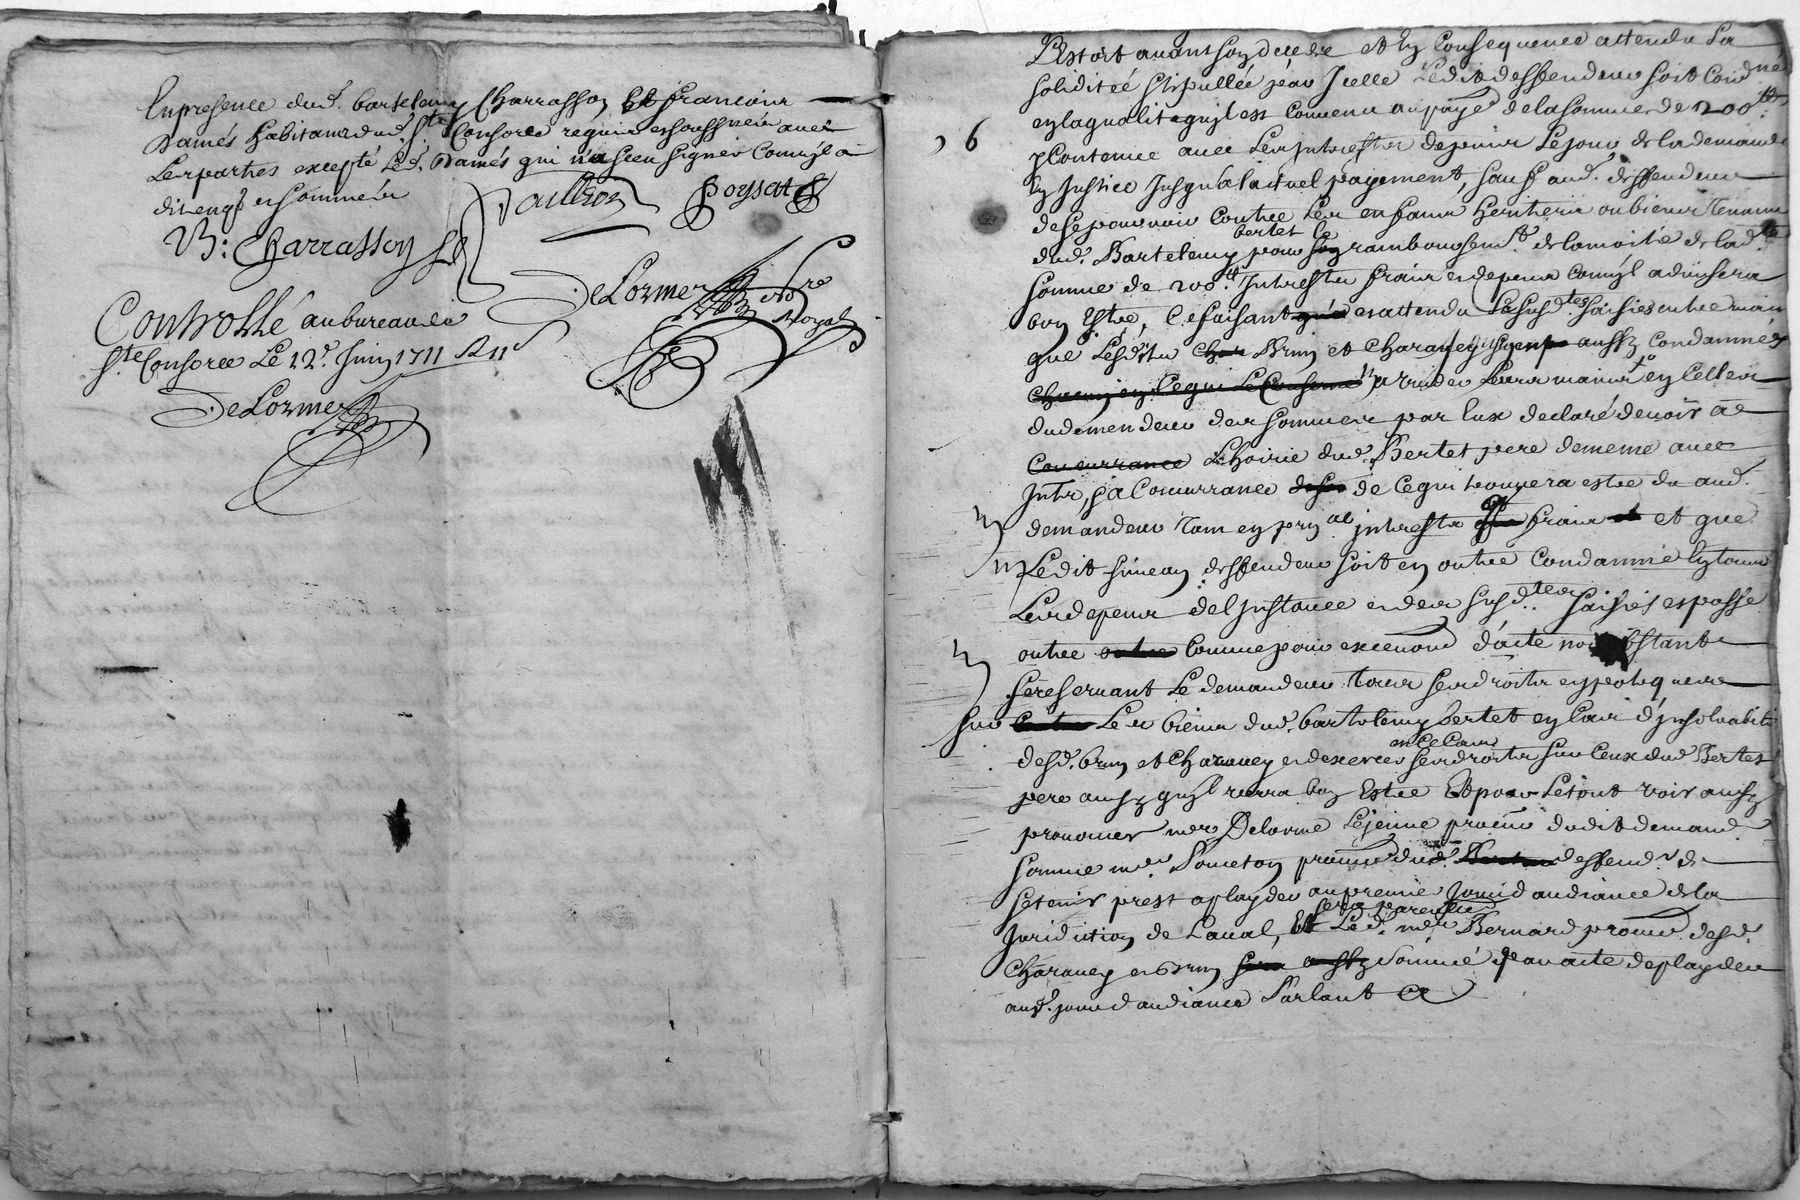 En presence dud. bartelemy Charrasson Et francoix
Damés habitans dud. Ste Consorce requis et soussignés avec
Les parties excepté Led. Damés qui n'a sceu signer Comme Il a
dit enqs et sommés
Poysat
B: Charrasson
DeLorme
Nre Royal
Controllé au bureau de
Ste Consorce Le 12e Juin 1711 R 11s
DeLorme
avant son decedz et En Consequence attendu La
solidité stipullée par Icelle Ledit deffendeur soit Condné
en la qualité quil est Convenu au payé de la somme de 200tt
6
y Contenue avec Les Interestz depuis Le jour de la demande
En Justice Jusqu'a l'actuel payement, sauf aud. deffendeur
de se pourvoir Contre Les enfans heritiers ou biens tenans
bertet Le
dud. Bartelemy pour rambourcemt de la moitié de lad.
somme de 200tt Interestz fraix et depens Comme Il advisera
bon Estre, Ce faisant et attendu Les susdtes saisies entre mains
que Lesditz Brun et Charaney aussy Condamnés
vuider Leurs mains en Celles
du demandeur des sommes par Eux declaré devoir a
L'hoirie dud. Bertet pere de meme avec
Intr, a Concurrance de Ce qui trouvera estre du aud.
demandeur Tant en prinal interestz fraix et que
Ledit simean deffendeur soit en outre Condamné En tous
Les depens de L'Instance et des susdtes saisies et passé
outre Comme pour excenond d'acte nonobstant
se reservant Le demandeur tous ses droitz eypoteques
sur Les biens dud. bartelemy bertet en Cas d'Insolvabité
desd. brun et Charaney et dexercer en Ce Cas ses droitz sur Ceux dud. Bertet
pere aussy quil verra bon Estre Et pour Le tout voir aussy
prononcer mer Delorme Le jeune procur dudit demand.
somme mer Ponceton procur dud. deffendr de
se tenir prest a playder au premier Jour d'audiance de la
sera pareille
Juridiction de Laval, Led. mer Bernard procur desd.
Charaney et Brun sommé par acte de playder
aud. jour d'audiance Parlant a